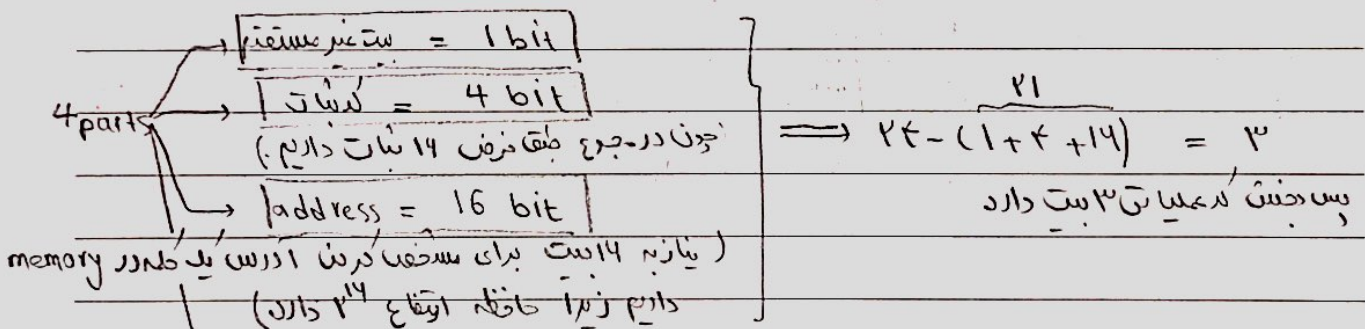 بیت غیر مستقیم = 1 bit
4 parts
کد ثبات = 4 bit
(چون در مجموع طبق فرض ۱۶ ثبات داریم.)
address = 16 bit
(نیاز به ۱۶ بیت برای مشخص کردن آدرس یک کلمه در memory
داریم زیرا حافظه ارتفاع ۲^۱۶ دارد)
۲۱
⟹ ۲۴-(۱+۴+۱۶) = ۳
پس بخش کد عملیاتی ۳ بیت دارد